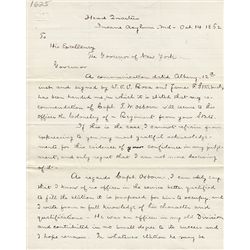 1625
Head Quarters
Insane Asylum Md - Oct 14 1862
To
His Excellency
The Governor of New York
Governor
A communication dated Albany 12th
inst and signed by
has been handed me in which it is stated that my re-
commendation of Capt. T. W. Osborn will secure to this
officer the Colonelcy of a Regiment from your State.
If this is the case, I cannot refrain from
expressing to you my most grateful acknowledge-
ments for this evidence of your confidence in my judg-
ment, and only regret that I am not more deserving
of it.
As regards Capt. Osborn I can only say
that I know of no officer in the service better qualified
to fill the station it is proposed for him to occupy, and
I write from a full knowledge of his character and
qualifications. He was an officer in my old Division
and contributed in no small degree to its success and
I hope renown. In whatever station he may be